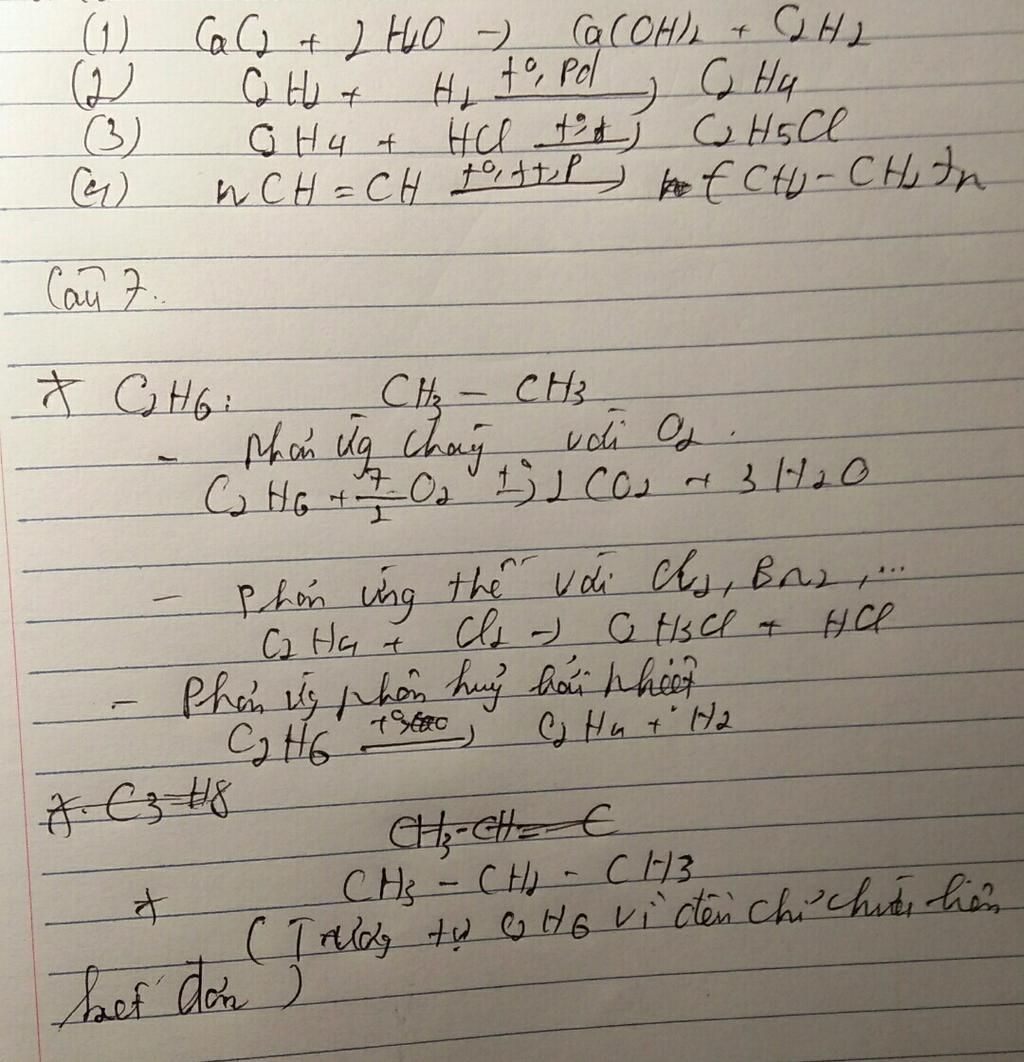 (1) CaC2 + 2 H2O → Ca(OH)2 + C2H2
(2) C2H2 + H2 t°, Pd → C2H4
(3) C2H4 + HCl → C2H5Cl
(4) n CH = CH t°, tt, P → ( CH2 - CH2 )n
Câu 7.
* C2H6: CH3 - CH3
- Phản ứg cháy với O2.
C2H6 + 7/2 O2 t° → 2 CO2 + 3 H2O
- Phản ứng thế với Cl2, Br2, ...
C2H4 + Cl2 → C2H3Cl + HCl
- Phản ứg phân huỷ bởi nhiệt
C2H6 t° → C2H4 + H2
* C3H8
CH3-CH=C
* CH3 - CH2 - CH3
(Tương tự C2H6 vì đều chỉ chứa liên
kết đơn)